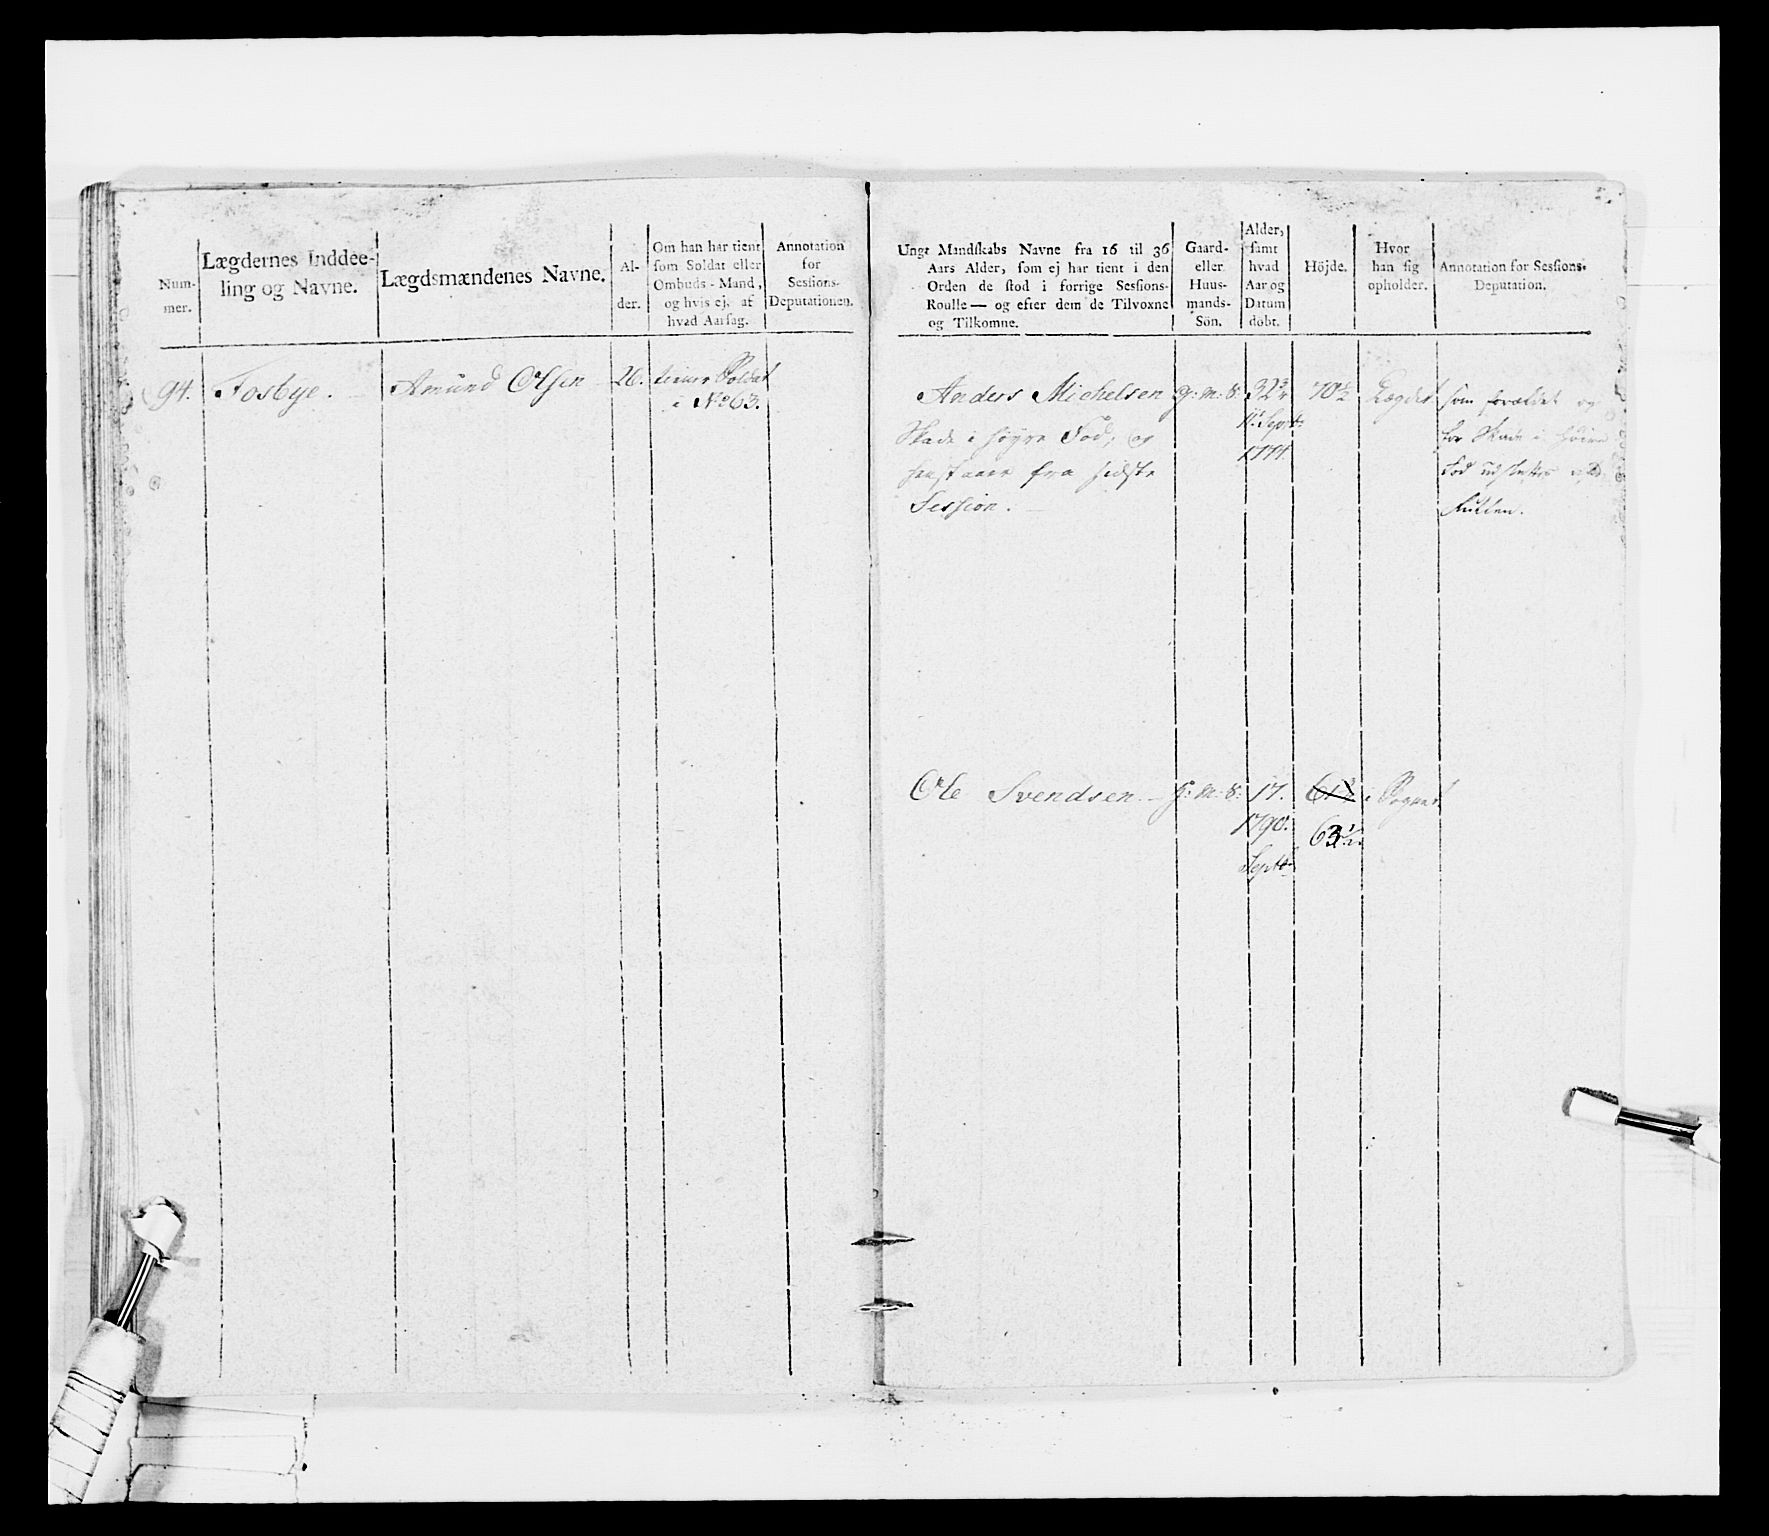 Num-
mer.
Lægdernes Inddee-
ling og Navne.
Lægdsmændenes Navne.
Al-
der.
Om han har tient
som Soldat eller
Ombuds-Mand,
og hvis ej, af
hvad Aarsag.
Annotation
for
Sessions-
Deputationen.
94.
Fosbye.
Amund Olsen
26.
tiener Soldat
i No 63.
Unge Mandskabs Navne fra 16 til 36
Aars Alder, som ej har tient i den
Orden de stod i forrige Sessions-
Roulle — og efter dem de Tilvoxne
og Tilkomne.
Gaard-
eller
Huus-
mands-
Sön.
Alder,
samt
hvad
Aar og
Datum
döbt.
Höjde.
Hvor
han sig
opholder.
Annotation for Sessions-
Deputation.
Anders Michelsen
g: m: s:
32
70½
Lægdet
som forældet og
Skade i høyre Fod, og
Septb:
for Skade i høire
fra sidste
Fod udslettes af
Session.
Rullen.
Ole Svendsen.
h: m: s:
17.
i Sognet
1790.
63½
Septb: